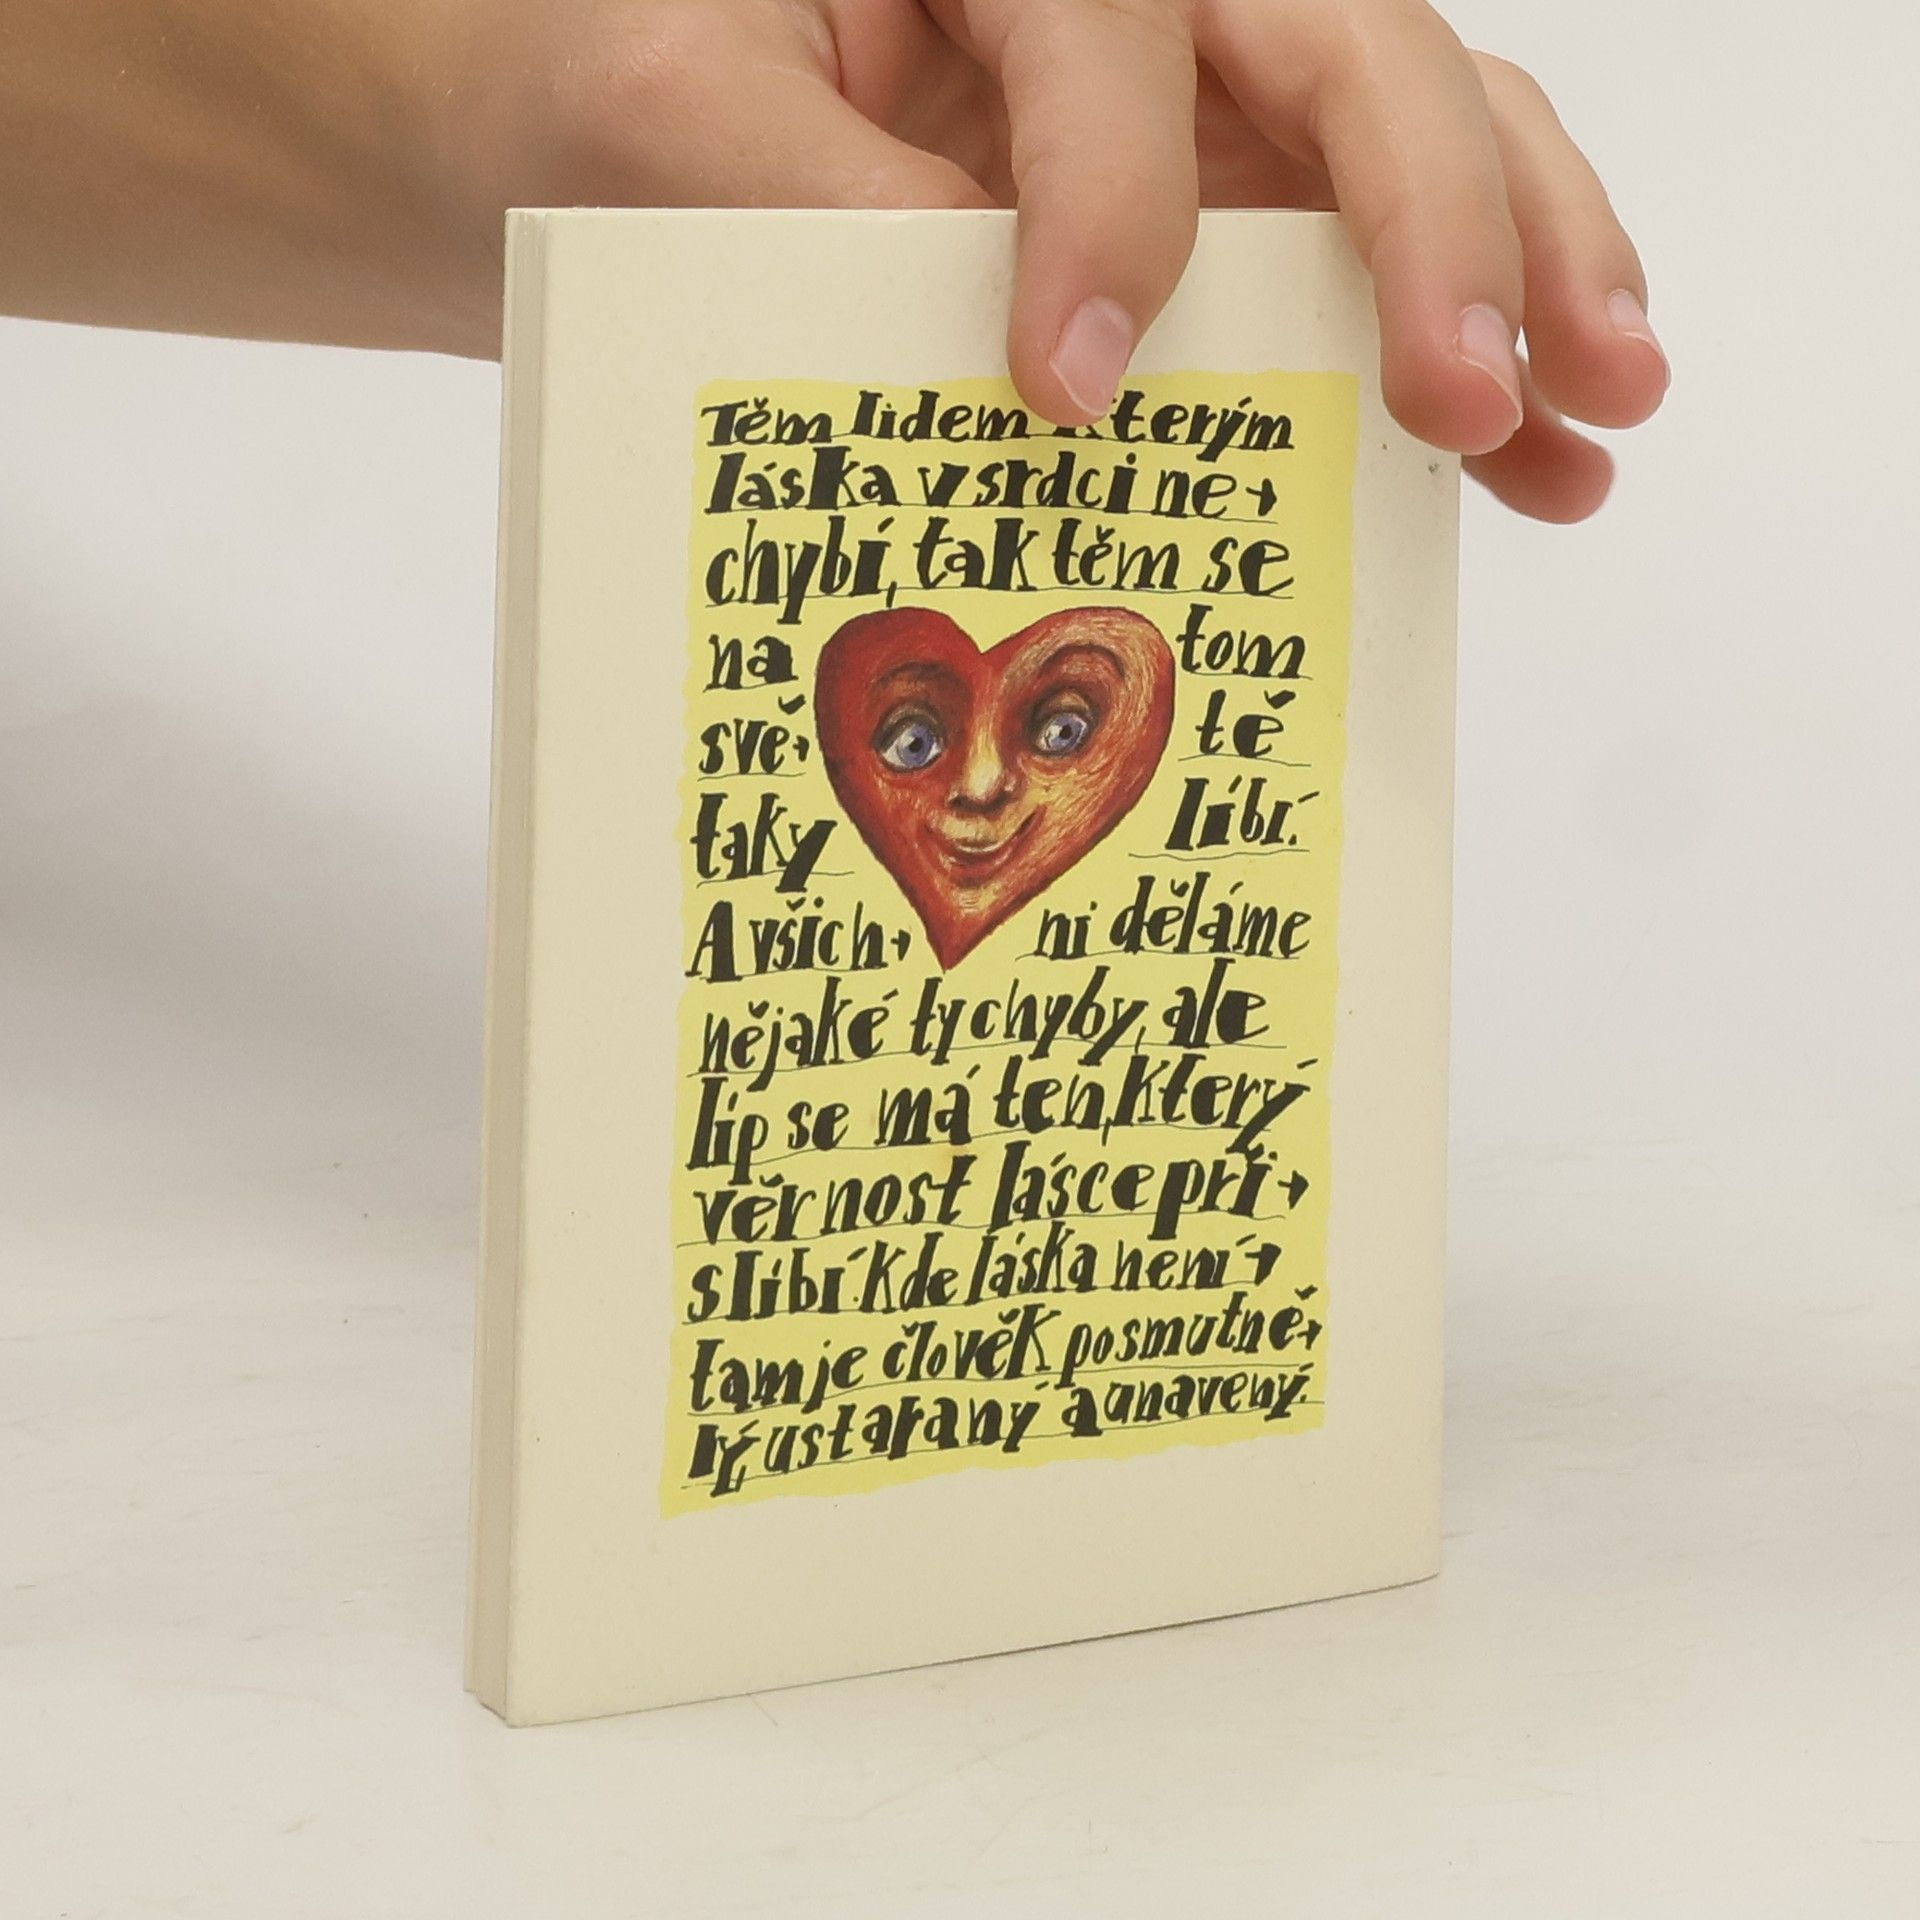 Těm lidem kterým
láska v srdci ne-
chybí, tak těm se
na tom
svě- tě
taky líbí.
A všich- ni děláme
nějaké ty chyby, ale
líp se má ten, který
věrnost lásce při-
slíbí. Kde láska není-
tam je člověk posmutně-
lý, ustaraný a unavený.